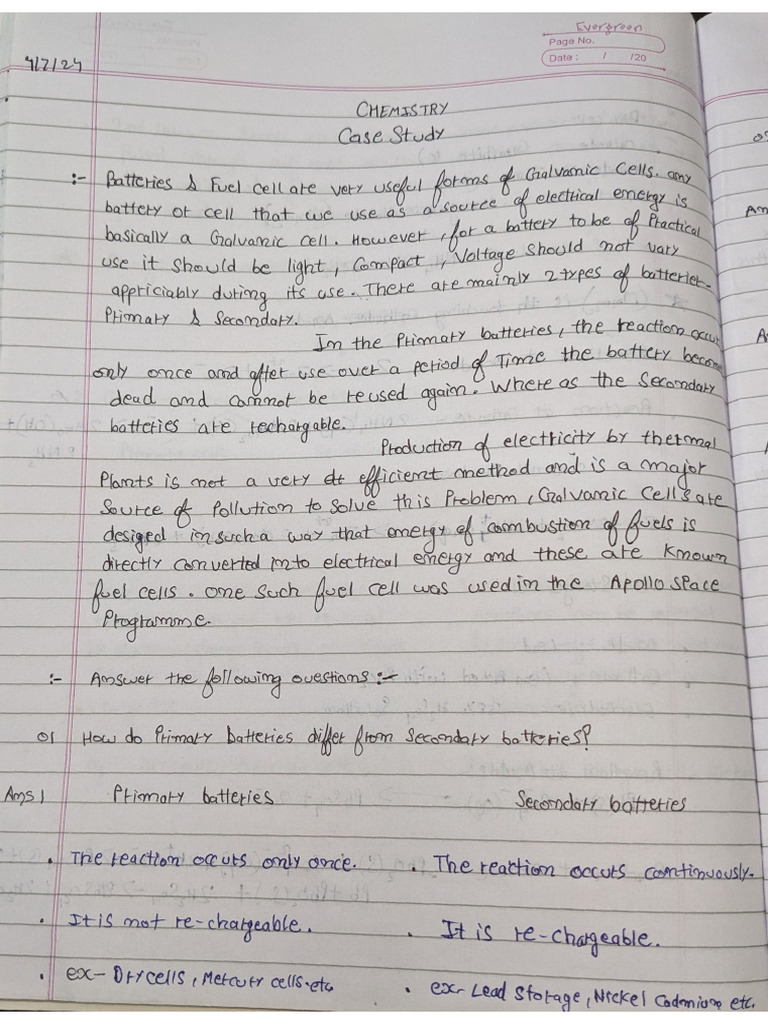 Evergreen
Page No.
Date : / /20
4/7/24
CHEMISTRY
Case Study
:- Batteries & Fuel cell are very useful forms of Galvanic Cells. any
battery or cell that we use as a source of electrical energy is
basically a Galvanic cell. However, for a battery to be of Practical
use it should be light, Compact, Voltage should not vary
appriciably during its use. There are mainly 2 types of batteries-
Primary & Secondary.
In the Primary batteries, the reaction occur
only once and after use over a period of Time the battery become
dead and cannot be reused again. Where as the Secondary
batteries are rechargable.
Production of electricity by thermal
Plants is not a very efficient method and is a major
Source of Pollution to solve this Problem, Galvanic Cells are
desiged in such a way that energy of combustion of fuels is
directly converted into electrical energy and these are known
fuel cells. One such fuel cell was used in the Apollo Space
Programme.
:- Answer the following questions :-
Q1 How do Primary batteries differ from Secondary batteries?
Ans 1 Primary batteries Secondary batteries
• The reaction occurs only once. • The reaction occurs continuously.
• It is not re-chargeable. • It is re-chargeable.
• ex- Dry cells, Mercury cells.etc • ex- Lead Storage, Nickel Cadmium etc.